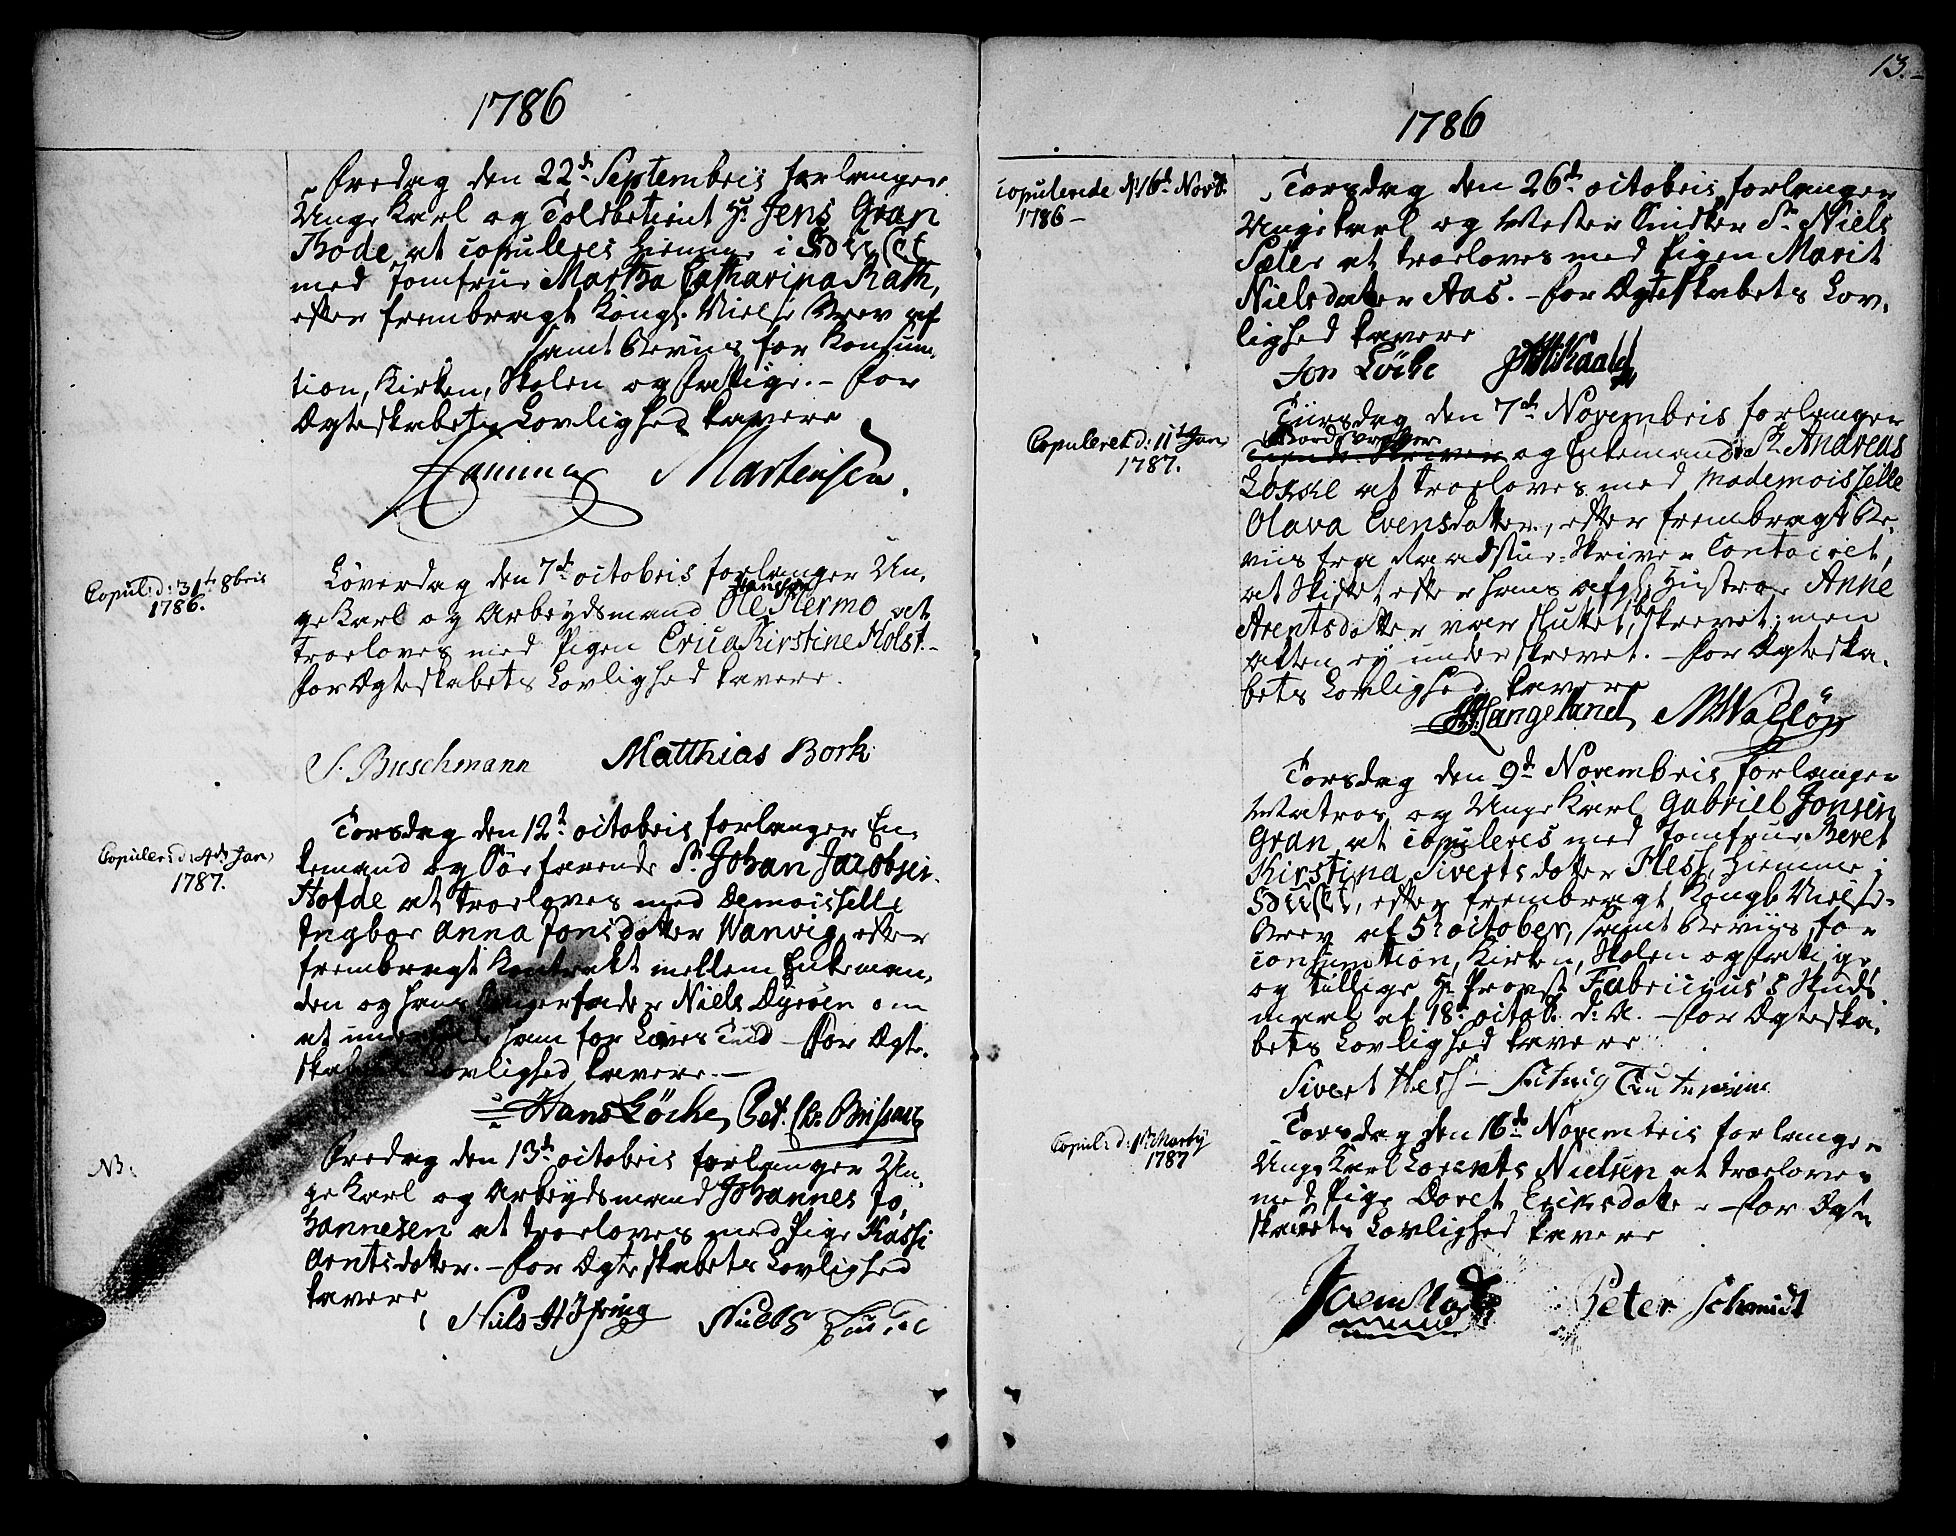 1786
Fredag den 22d Septembris forlanger
Unge Karl og Toldbetient Hr. Jens Gran
Bode at copuleres hiemme i Huuset
med Jomfrue Martha Catharina Rath,
efter frembragt Kongl. Vielse Brev af
samt Beviis for Konsum-
tion, Kirken, Skolen og fattige. - for
Ægteskabets Lovlighed kavere
Hammer Martensen.
Copul: d: 31t 8bris
1786.
Løverdag den 7d octobris forlanger Un-
ge Karl og Arbeydsmand Ole Hansen Stermo at
troeloves med Pigen Erica Kirstine Holst. -
for Ægteskabets Lovlighed kavere.
S. Buschmann Matthias Bork
Copuler: d: 4de Jan,
1787.
Torsdag den 12t octobris forlanger En-
kemand og Søefarende Sr. Johan Jacobsen
Hofde at troeloves med Demoisselle
Ingbor Anna Jonsdatter Wanvig efter
frembragt Kontrakt mellem Enkeman-
den og hans Svigerfader Niels Dyrøen om
at underholde ham for Lives Tiid - for Ægte-
skabets Lovlighed kavere. -
Hans Løche, Pet. Chr.
NB:
Fredag den 13d octobris forlanger Un-
ge Karl og Arbeydsmand Johannes Jo-
hannesen at troeloves med Pige Kassi
Arntsdatter. - for Ægteskabets Lovlighed
kavere
Niels Niels
13.
1786
Copulerede d. 16d Novb.
1786 -
Torsdag den 26d octobris forlanger
Ungekarl og Mester Snidker Sr. Niels
at troeloves med Pigen Marit
Nielsdatter Aas. - for Ægteskabets Lov-
lighed kavere
Jon Løche
Copuleret d: 11t Jan,
1787.
Tiirsdag den 7d Novembris forlanger
og Enkemand Sr. Andreas
at troeloves med Mademoisselle
Olava Evensdatter, efter frembragt Be-
viis fra Raadstue-Skriver Contoiret,
at Skiftet efter hans afgl. Hustroe Anne
Arentsdatter var sluttet, skrevet; men
Akten ey underskrevet. - for Ægteska-
bets Lovlighed kavere
Hangeland M Walløe
Torsdag den 9d Novembris forlanger
Matros og Unge Karl Gabriel Jonsen
Gran at copuleres med Jomfrue Beret
Kirstina Sivertsdatter Hess, hiemme i
Huuset, efter frembragt Kongl. Vielse-
Brev af 5t october, samt Beviis for
consumtion, Kirken, Skolen og fattige
og tillige Hr. Provst Fabricius's Skuds-
maal af 18t octob. d: A. - for Ægteska-
bets Lovlighed kavere
Sivert Hess -
Copul: d: 1t Marty
1787
Torsdag den 16de Novembris forlanger
Unge Karl Lorents Nielsen at troeloves
med Pige Doret Eriksdatter - for Ægte-
skabets Lovlighed kavere
Peter Schmidt